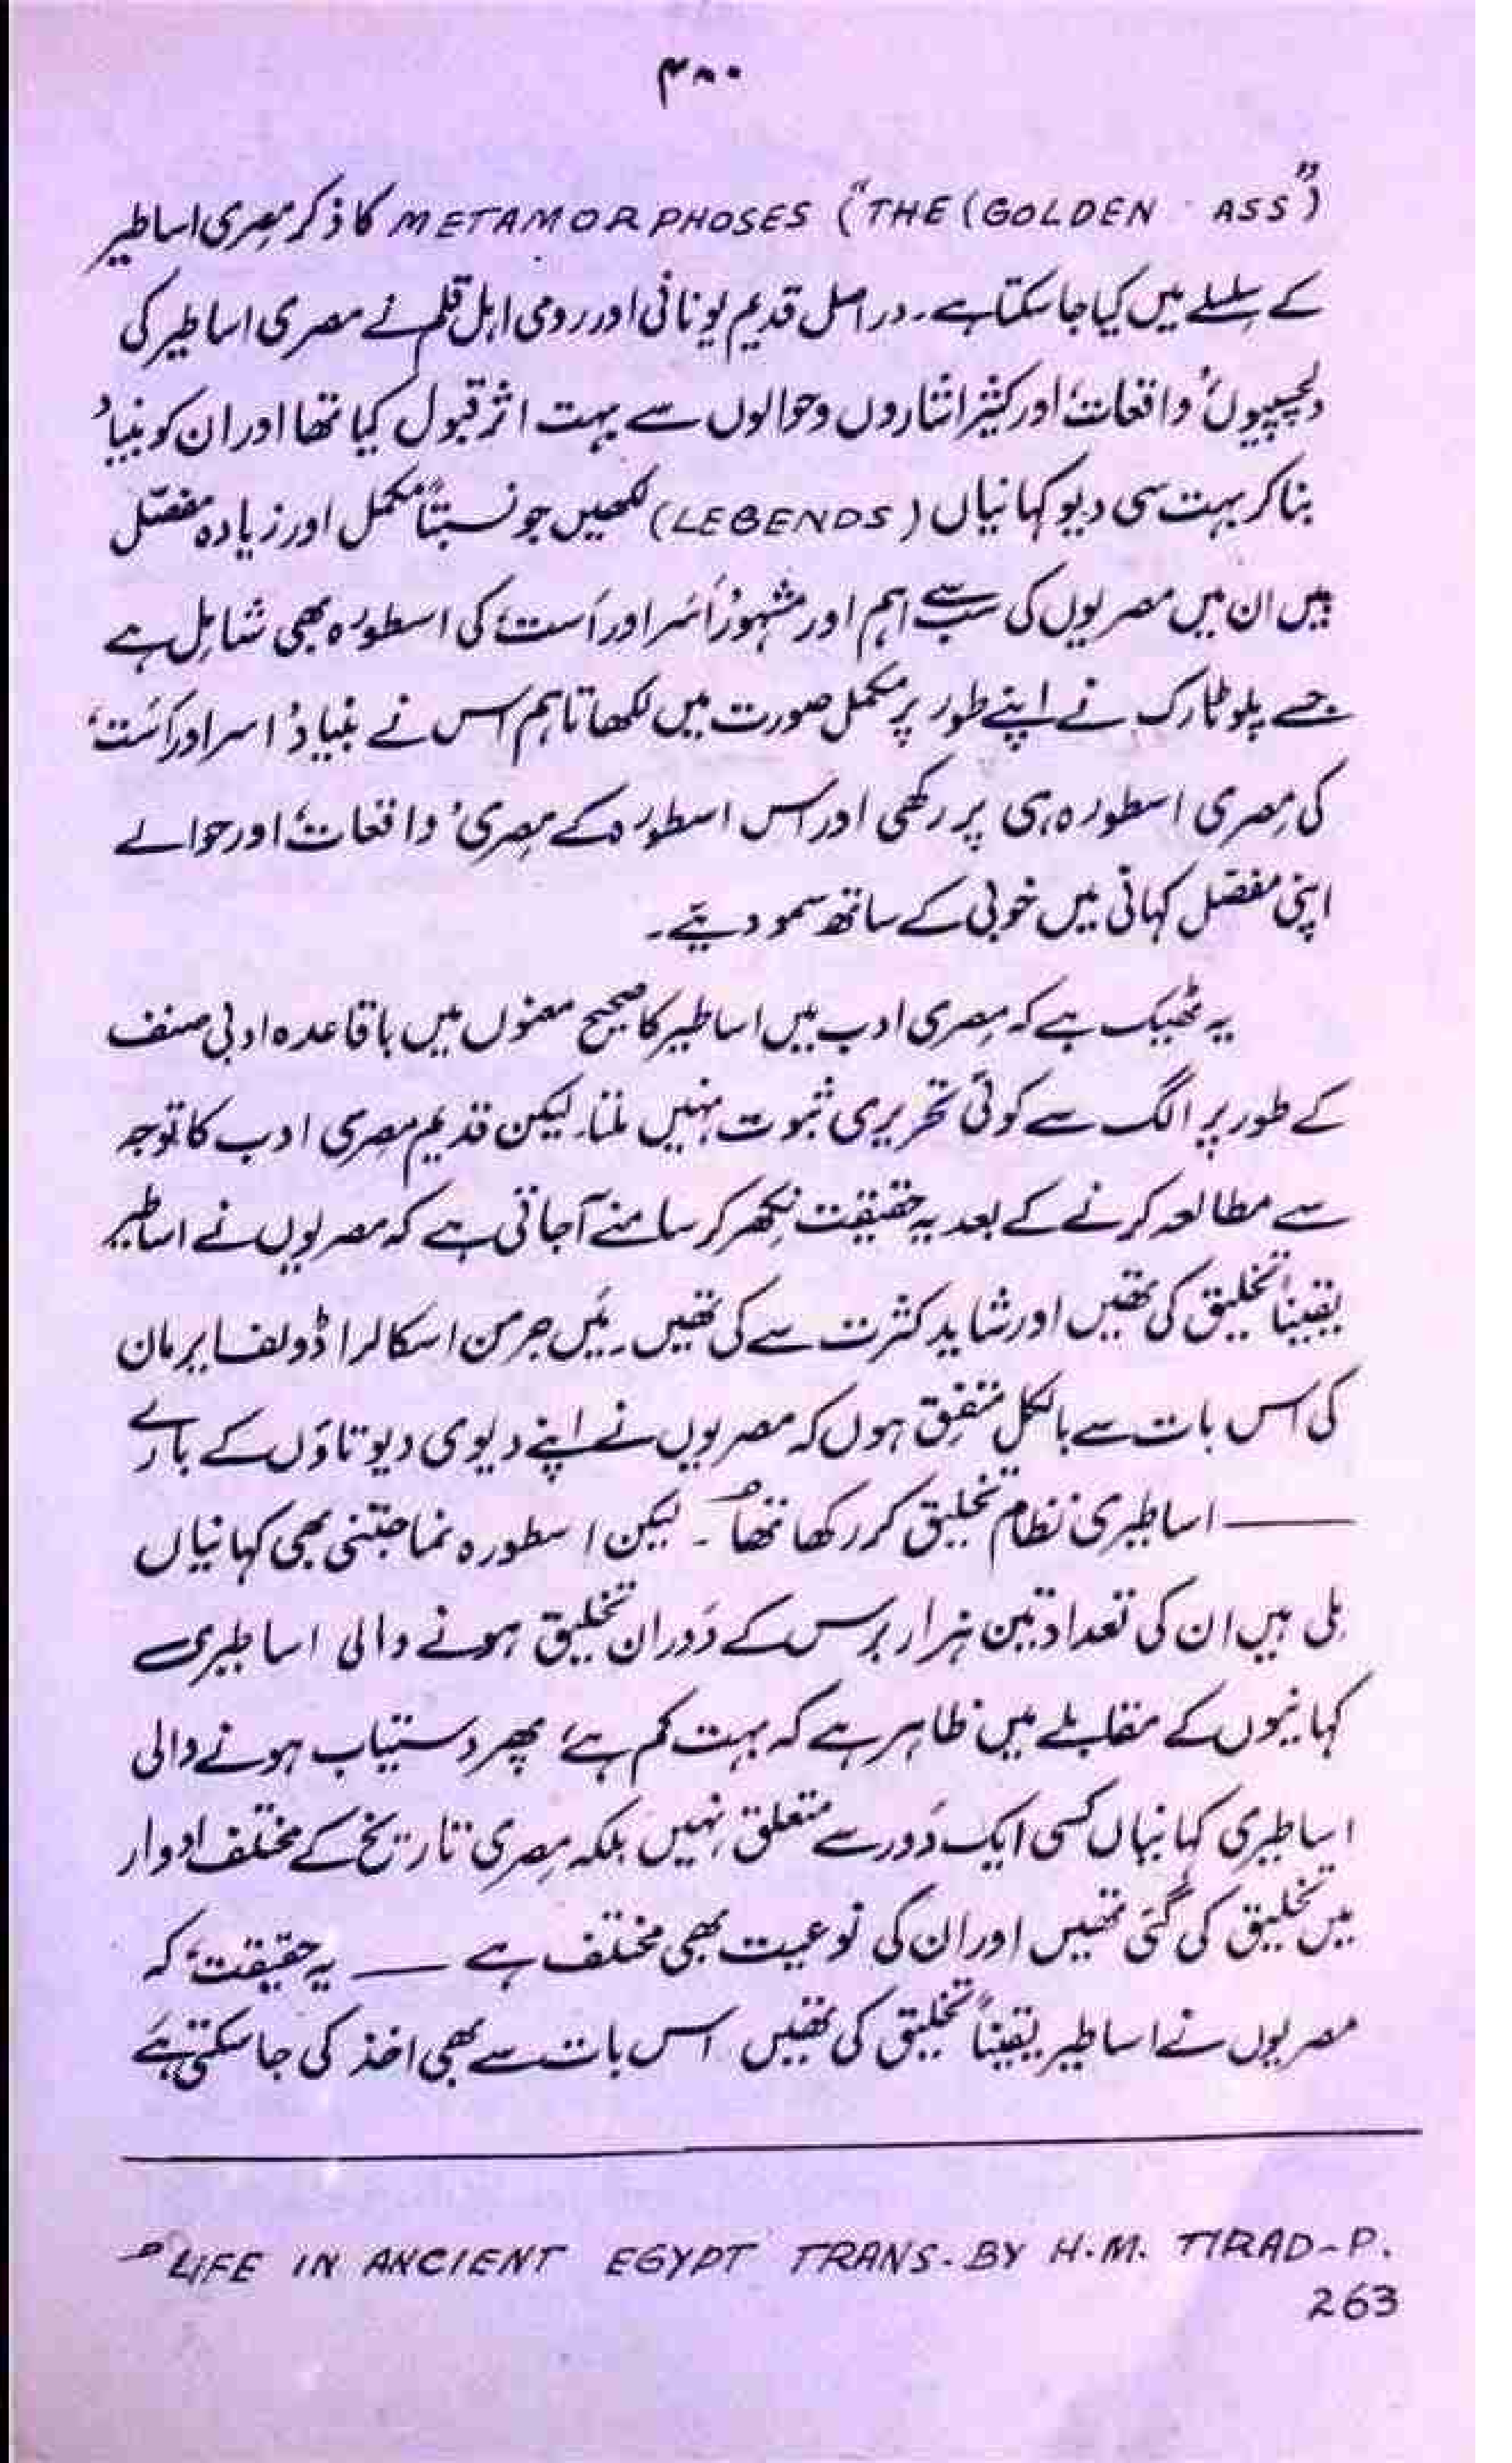 ۴۸۰
METAMORPHOSES ("THE (GOLDEN ASS") کا ذکر مصری اساطیر
کے سلسلے میں کیا جا سکتا ہے۔ دراصل قدیم یونانی اور رومی اہل قلم نے مصری اساطیر کی
دلچسپیوں، واقعات، اور کثیر اشاروں وحوالوں سے بہت اثر قبول کیا تھا اور ان کو بنیاد
بنا کر بہت سی دیو کہانیاں (LEBENDS) لکھیں جو نسبتاً مکمل اور زیادہ مفصّل
ہیں ان میں مصریوں کی سب سے اہم اور مشہور اُسَر اور اَست، کی اسطورہ بھی شامل ہے
جسے پلوٹارک نے اپنے طور پر مکمل صورت میں لکھا تاہم اس نے بنیاد اسر اور اَست،
کی مِصری اسطورہ ہی پر رکھی اور اس اسطورہ کے مِصری، واقعات، اور حوالے
اپنی مفصّل کہانی میں خوبی کے ساتھ سمو دیئے۔
یہ ٹھیک ہے کہ مِصری ادب میں اساطیر کا صحیح معنوں میں باقاعدہ ادبی صنف
کے طور پر الگ سے کوئی تحریری ثبوت نہیں ملتا۔ لیکن قدیم مصری ادب کا توجہ
سے مطالعہ کرنے کے بعد یہ حقیقت نکھر کر سامنے آجاتی ہے کہ مصریوں نے اساطیر
یقیناً تخلیق کی تھیں اور شاید کثرت سے کی تھیں۔ مَیں جرمن اسکالر اڈولف ایرمان
کی اس بات سے بالکل متفق ہوں کہ مصریوں نے اپنے دیوی دیوتاؤں کے بارے
——— اساطیری نظام تخلیق کر رکھا تھا؂۔ لیکن اسطورہ نما جتنی بھی کہانیاں
مِلی ہیں ان کی تعداد تین ہزار برس کے دَوران تخلیق ہونے والی اساطیری
کہانیوں کے مقابلے میں ظاہر ہے کہ بہت کم ہے، پھر دستیاب ہونے والی
اساطیری کہانیاں کسی ایک دَور سے متعلق نہیں بلکہ مِصری تاریخ کے مختلف ادوار
میں تخلیق کی گئی تھیں اور ان کی نوعیت بھی مختلف ہے —— یہ حقیقت، کہ
مصریوں نے اساطیر یقیناً تخلیق کی تھیں اس بات سے بھی اخذ کی جا سکتی ہے
؂ LIFE IN ANCIENT EGYPT TRANS-BY H.M. TIRAD-P.
263